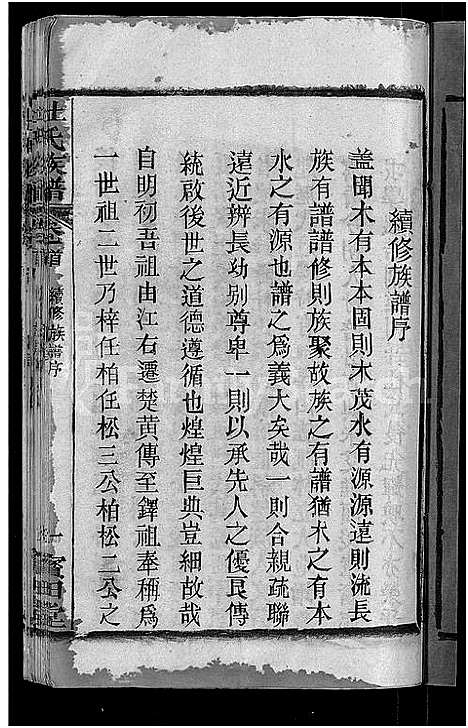 續修族譜序
蓋聞木有本本固則木茂水有源源遠則流長
族有譜譜修則族聚故族之有譜猶木之有本
水之有源也譜之爲義大矣哉一則合親疏聯
遠近辨長幼别尊卑一則以承先人之優良傳
統啟後世之道德遵循也煌煌巨典豈細故哉
自明初吾祖由江右遷楚黄傳至鐸祖奉稱爲
一世祖二世乃梓任柏任松三公柏松二公之
氏族譜
首
續修族譜序
一